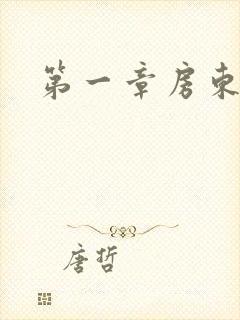 第一章房东
唐哲